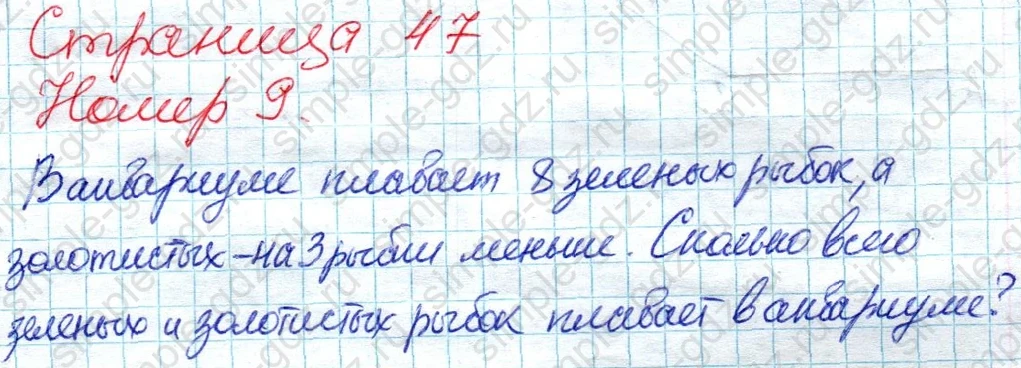 Страница 47
Номер 9.
В аквариуме плавает 8 зеленых рыбок, а
золотистых - на 3 рыбки меньше. Сколько всего
зеленых и золотистых рыбок плавает в аквариуме?
simple-gdz.ru